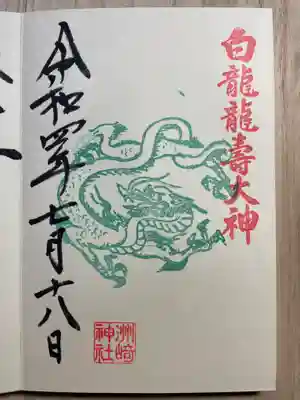 白龍龍壽大神
令和四年七月十八日
洲﨑
神社